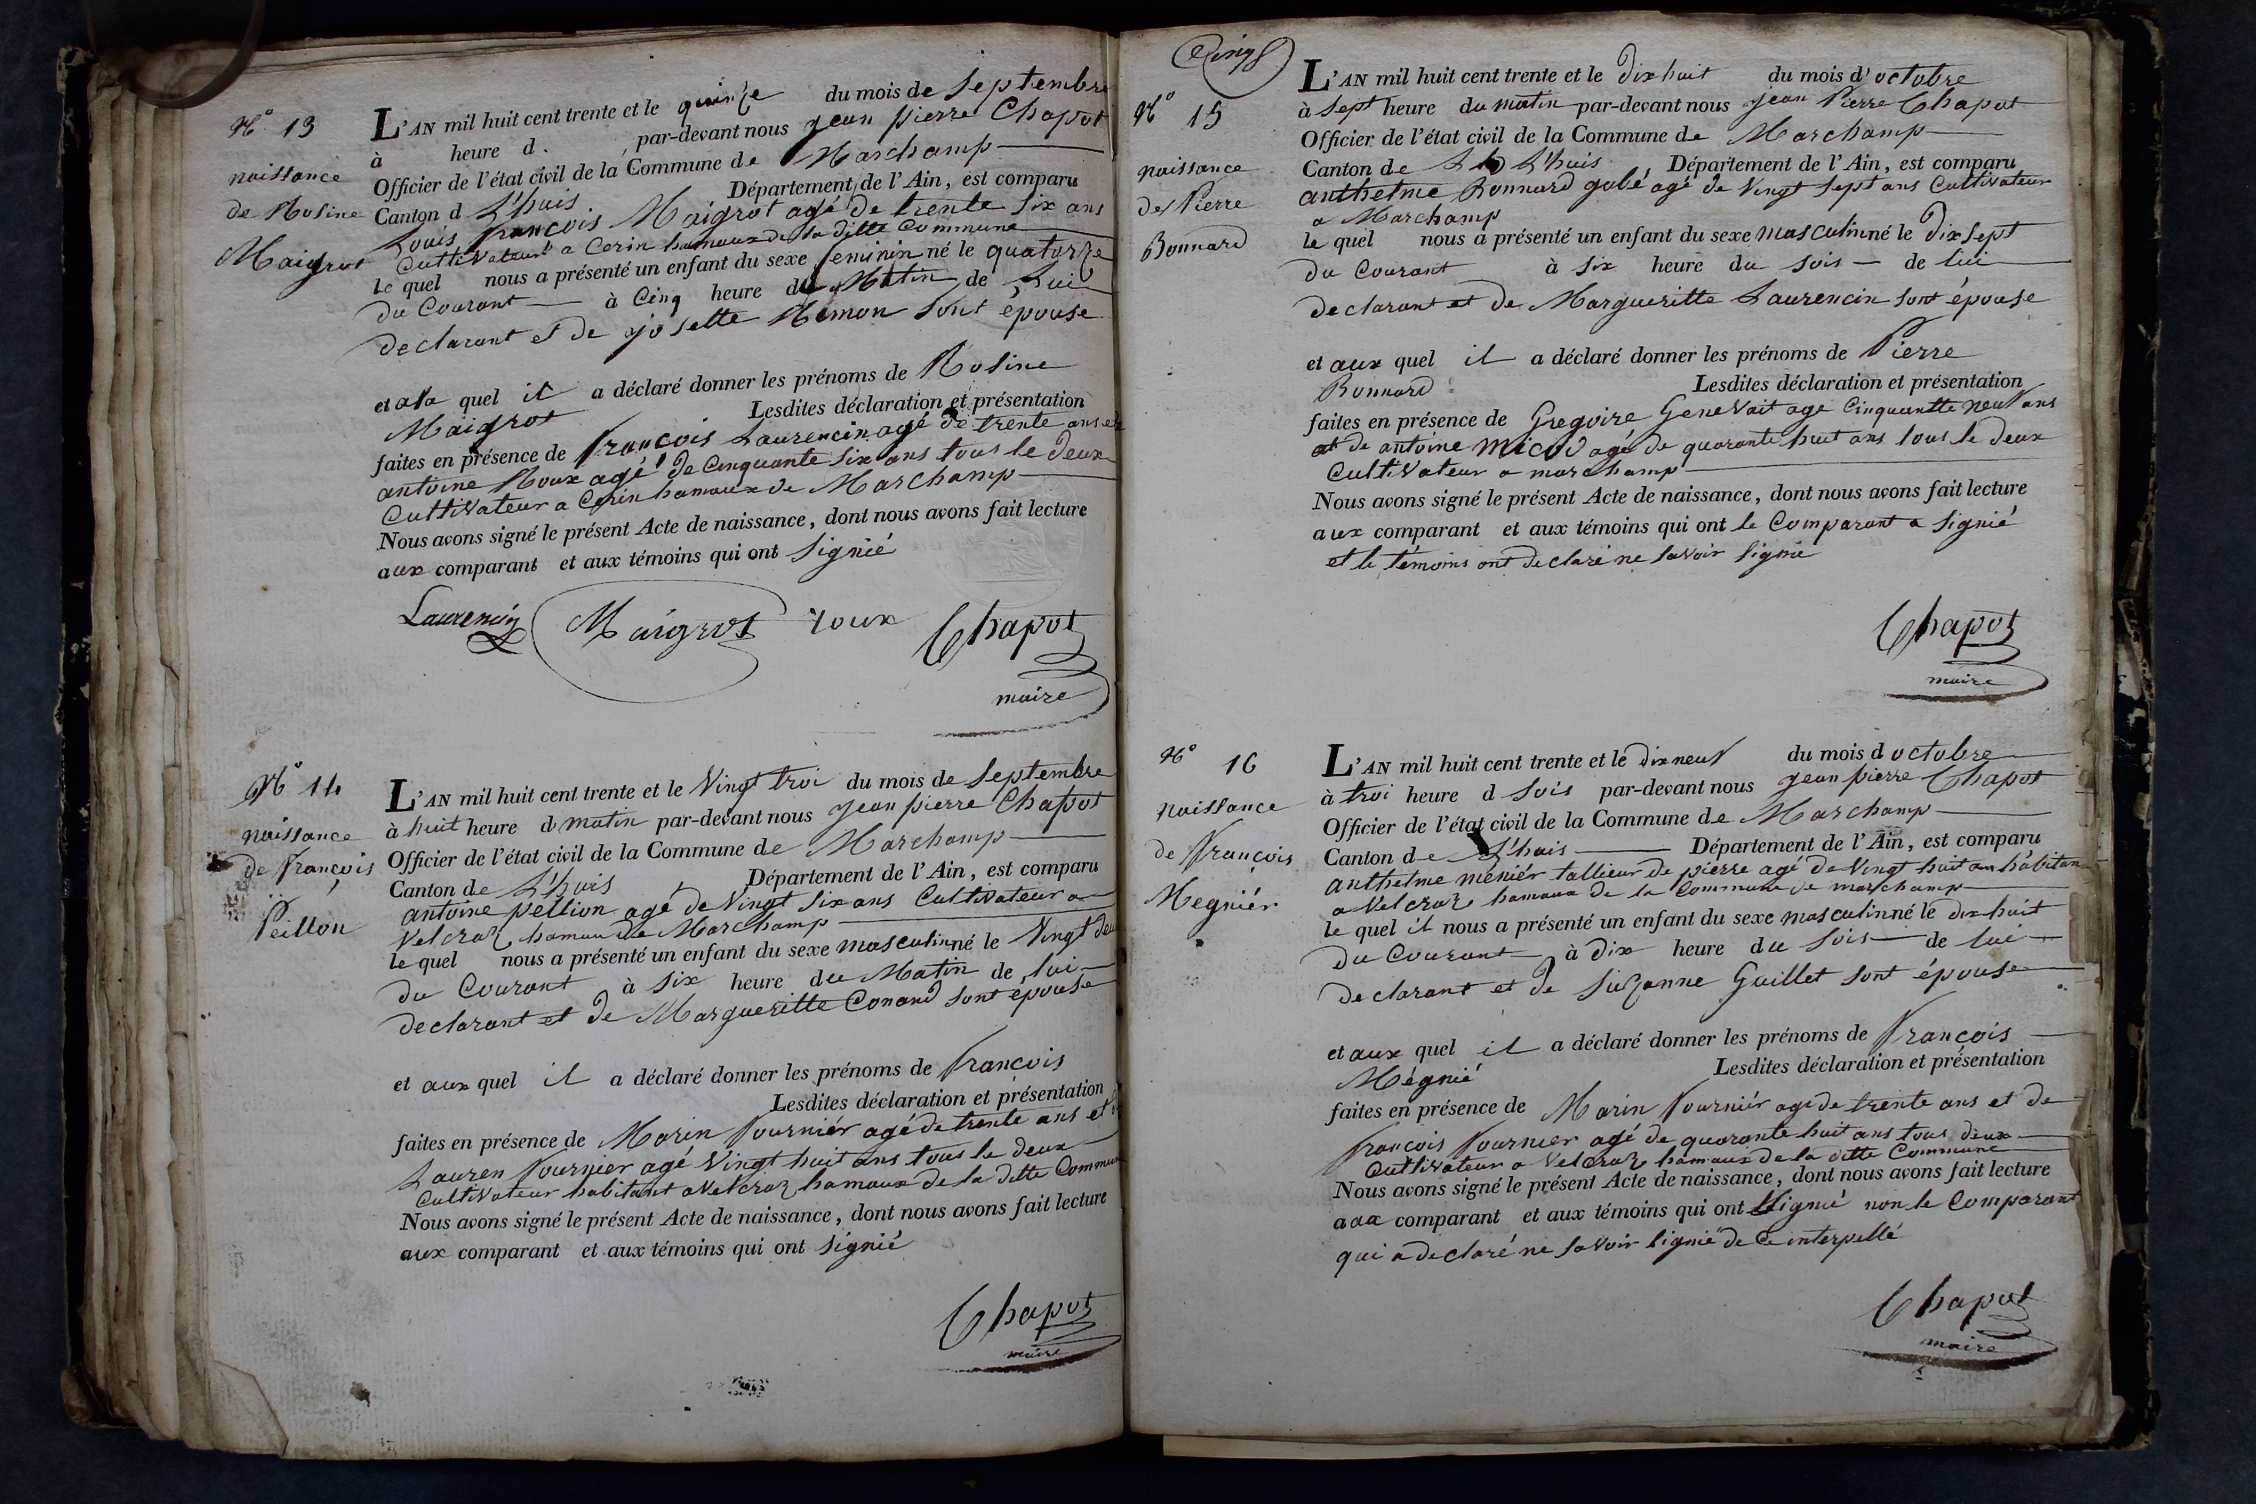 N° 13
naissance
de Rosine
Maigrot
L'AN mil huit cent trente et le quinze du mois de septembre
à heure d. par-devant nous jean pierre Chapot
Officier de l'état civil de la Commune de Marchamp
Canton d L'huis Département de l'Ain, est comparu
Louis françois Maigrot agé de trente six ans
Cultivateur a Cerin hamaux de la ditte Commune
le quel nous a présenté un enfant du sexe feminin né le quatorze
du Courant à Cinq heure du Matin de Lui
declarant et de josette Memon sont épouse
et a la quel il a déclaré donner les prénoms de Rosine
Maigrot Lesdites déclaration et présentation
faites en présence de françois Laurencin agé de trente ans et
antoine Roux agé de Cinquante six ans tous le deux
Cultivateur a Cerin hamaux de Marchamp
Nous avons signé le présent Acte de naissance, dont nous avons fait lecture
aux comparant et aux témoins qui ont signié
Laurencin Maigrot roux Chapot
maire
N° 14
naissance
de françois
Peillon
L'AN mil huit cent trente et le Vingt troi du mois de septembre
à huit heure d matin par-devant nous jean pierre Chapot
Officier de l'état civil de la Commune de Marchamp
Canton de L'huis Département de l'Ain, est comparu
antoine pellion agé de Vingt six ans Cultivateur a
Velcroz hamau de Marchamp
le quel nous a présenté un enfant du sexe masculin né le Vingt deu
du Courant à six heure du Matin de lui
declarant et de Margueritte Conand sont épouse
et aux quel il a déclaré donner les prénoms de francois
Lesdites déclaration et présentation
faites en présence de Marin fourniér agé de trente ans et
Lauren fournier agé Vingt huit ans tous le deux
Cultivateur habitant a Velcroz hamaux de la ditte Commun
Nous avons signé le présent Acte de naissance, dont nous avons fait lecture
aux comparant et aux témoins qui ont signié
Chapot
maire
Cinq
N° 15
naissance
des Pierre
Bonnard
L'AN mil huit cent trente et le dix huit du mois d'octobre
à sept heure du matin par-devant nous jean Pierre Chapot
Officier de l'état civil de la Commune de Marchamp
Canton de L'huis Département de l'Ain, est comparu
anthelme Bonnard gobé agé de Vingt sept ans Cultivateur
a Marchamp
le quel nous a présenté un enfant du sexe masculin né le dix sept
du Courant à six heure du soir de lui
declarant et de Margueritte Laurencin sont épouse
et aux quel il a déclaré donner les prénoms de Pierre
Bonnard Lesdites déclaration et présentation
faites en présence de Gregoire Genevait age Cinquantte neuf ans
et de antoine micod agé de quarante huit ans tous le deux
Cultivateur a marchamp
Nous avons signé le présent Acte de naissance, dont nous avons fait lecture
aux comparant et aux témoins qui ont le Comparant a signié
et le témoins ont declaré ne savoir signié
Chapot
maire
N° 16
naissance
de françois
Megniér
L'AN mil huit cent trente et le dix neuf du mois d octobre
à troi heure d soir par-devant nous jean pierre Chapot
Officier de l'état civil de la Commune de Marchamp
Canton de L'huis Département de l'Ain, est comparu
anthelme meniér tallieur de pierre agé de Vingt huit an habitan
a Velcroz hamaux de la Commune de marchamp
le quel il nous a présenté un enfant du sexe masculin né le dix huit
du Courant à dix heure du soir de lui
declarant et de Suzanne Guillet sont épouse
et aux quel il a déclaré donner les prénoms de françois
Mégnié Lesdites déclaration et présentation
faites en présence de Marin fourniér agé de trente ans et de
françois fournier agé de quarante huit ans tous deux
Cultivateur a Velcroz hamaux de la ditte Commune
Nous avons signé le présent Acte de naissance, dont nous avons fait lecture
aux comparant et aux témoins qui ont signié non le Comparant
qui a declaré ne savoir signié de Ce interpellé
Chapot
maire